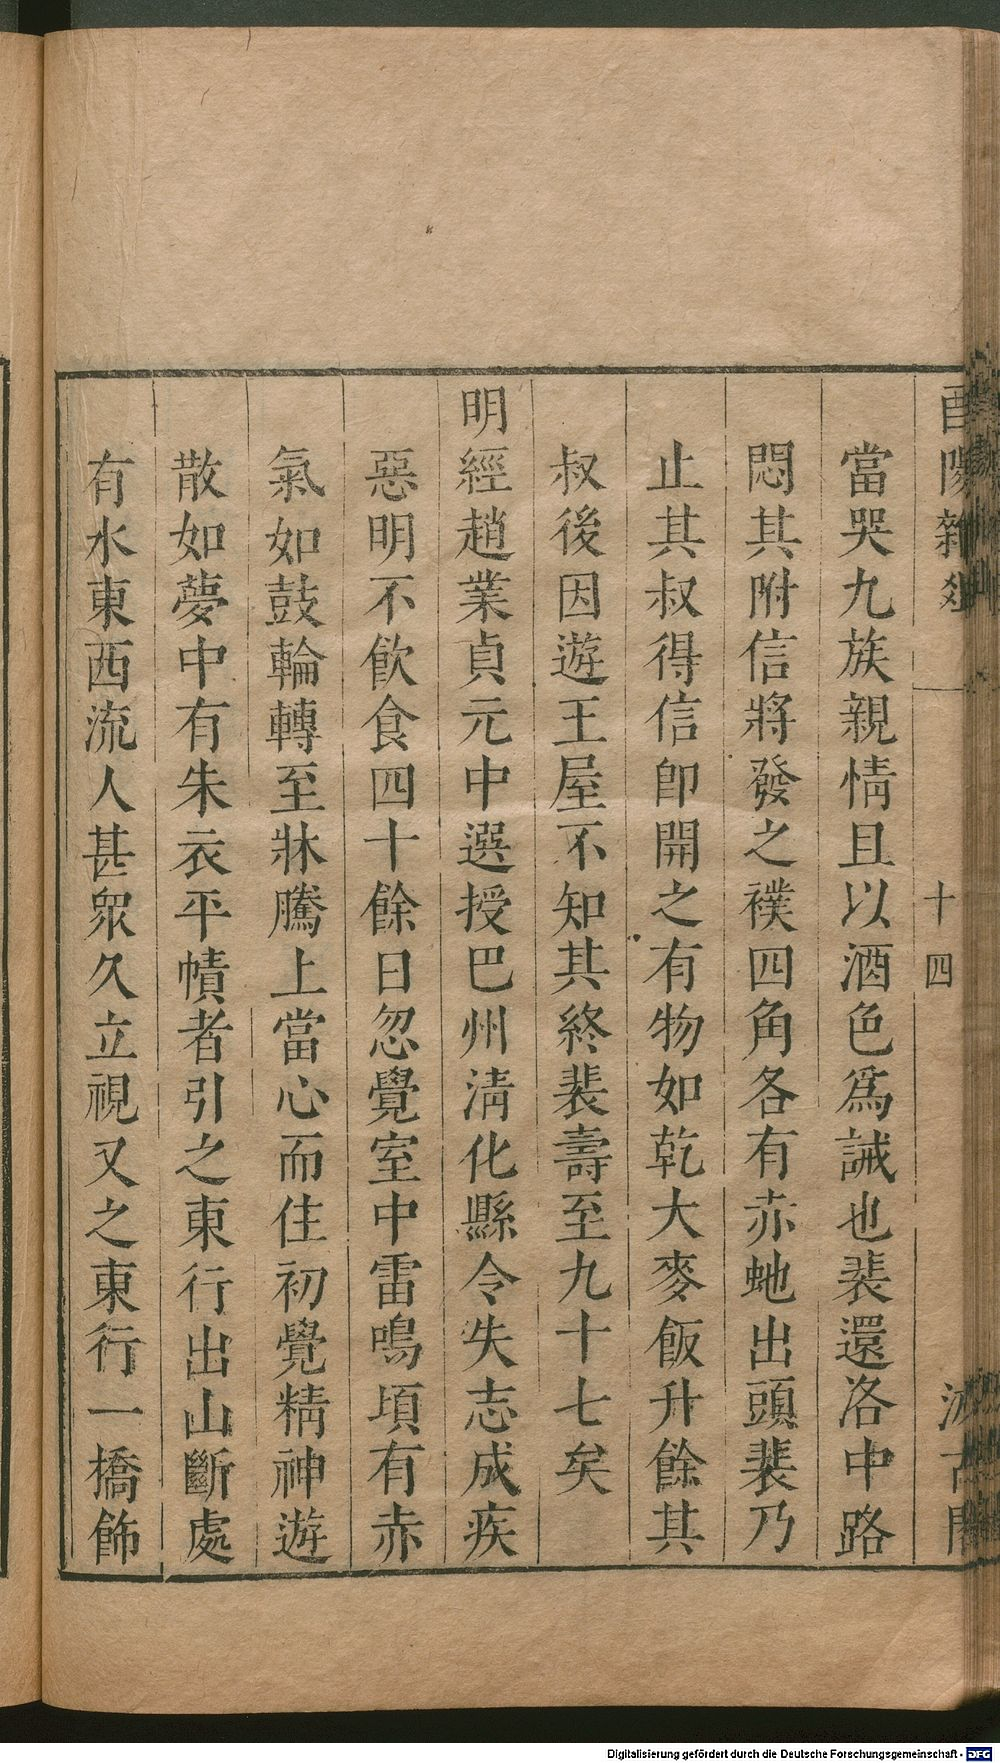 酉陽雜俎
十四
汲古閣
當哭九族親情且以酒色爲誡也裴還洛中路
悶其附信將發之襆四角各有赤虵出頭裴乃
止其叔得信卽開之有物如乾大麥飯升餘其
叔後因遊王屋不知其終裴壽至九十七矣
明經趙業貞元中選授巴州淸化縣令失志成疾
惡明不飮食四十餘日忽覺室中雷鳴頃有赤
氣如鼓輪轉至牀騰上當心而住初覺精神遊
散如夢中有朱衣平幘者引之東行出山斷處
有水東西流人甚眾久立視又之東行一橋飾
Digitalisierung gefördert durch die Deutsche Forschungsgemeinschaft - DFG